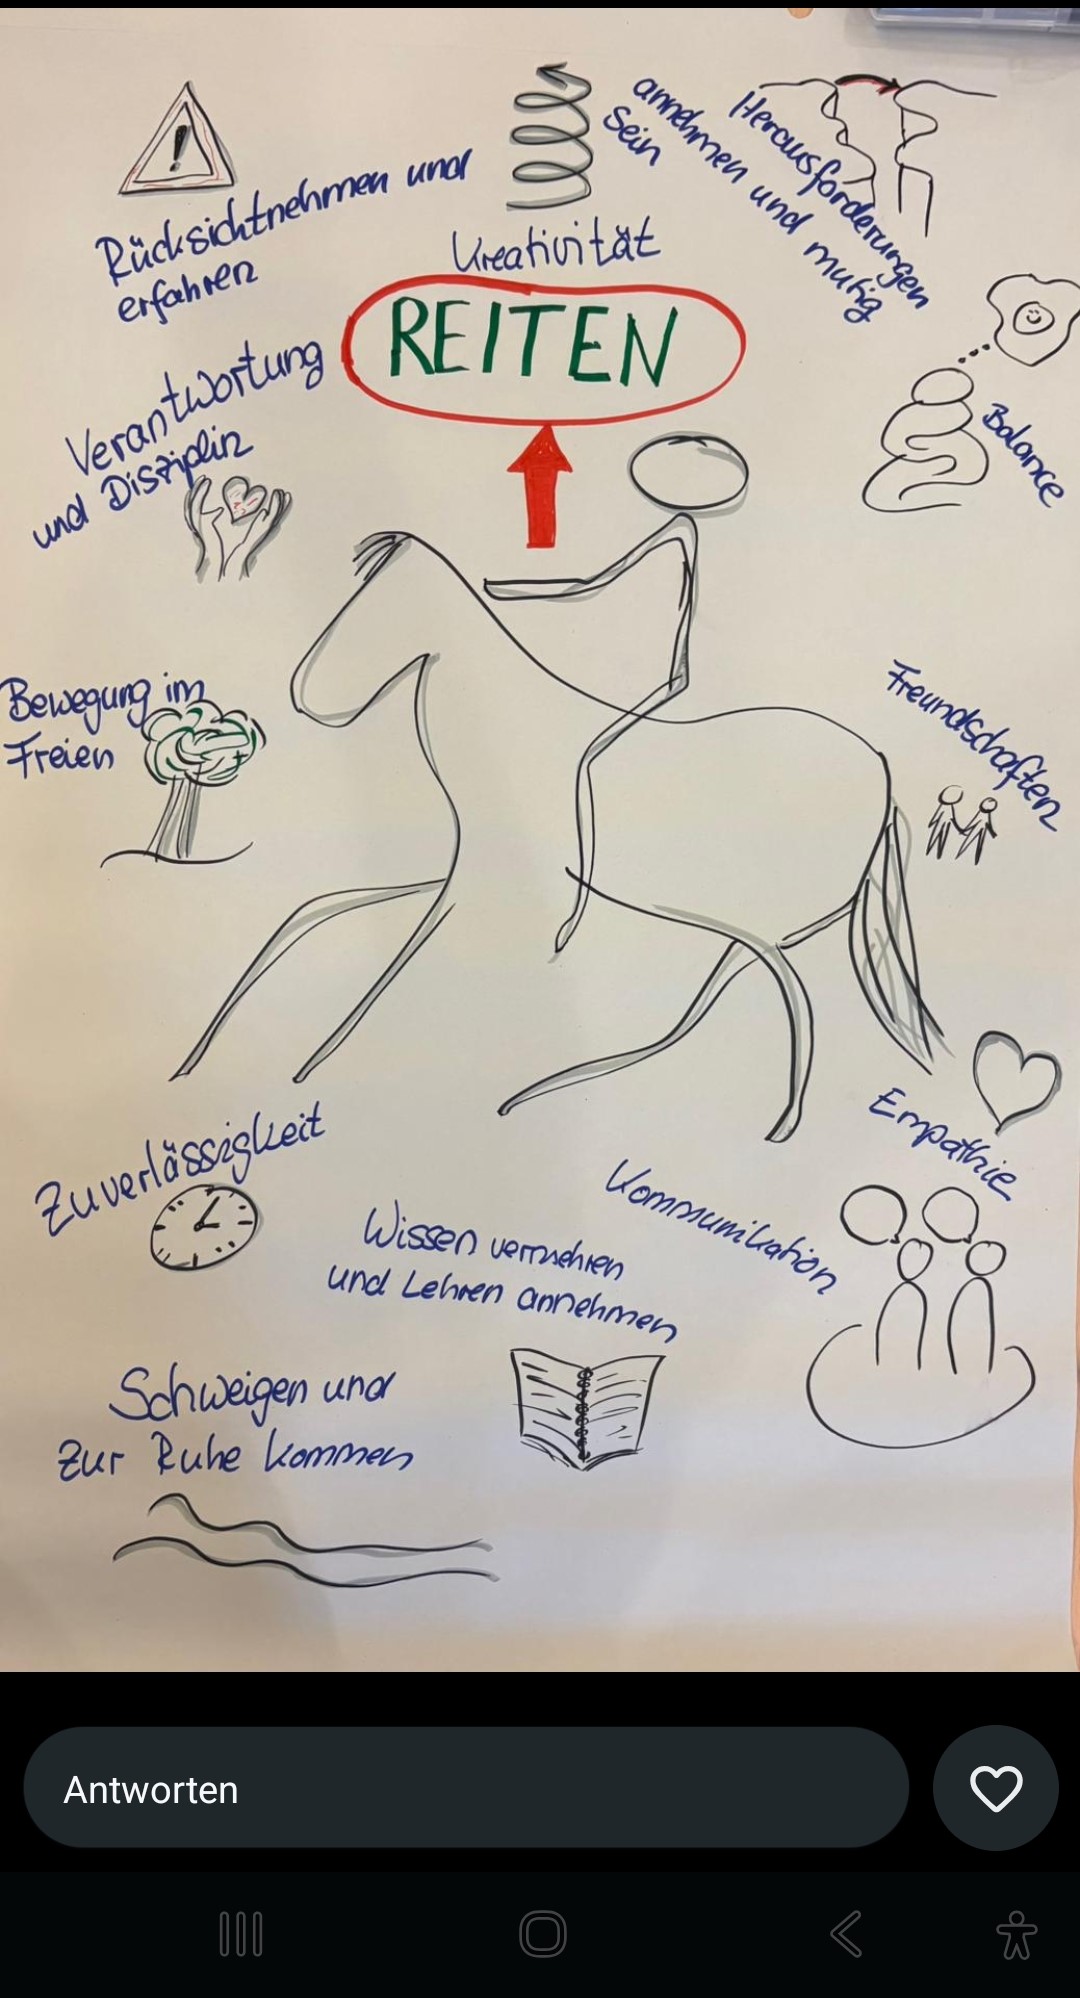 Rücksichtnehmen und
erfahren
Kreativität
Herausforderungen
annehmen und mutig
Sein
REITEN
Verantwortung
und Disziplin
Balance
Bewegung im
Freien
Freundschaften
Empathie
Zuverlässigkeit
Kommunikation
Wissen vermehren
und Lehren annehmen
Schweigen und
zur Ruhe kommen
Antworten